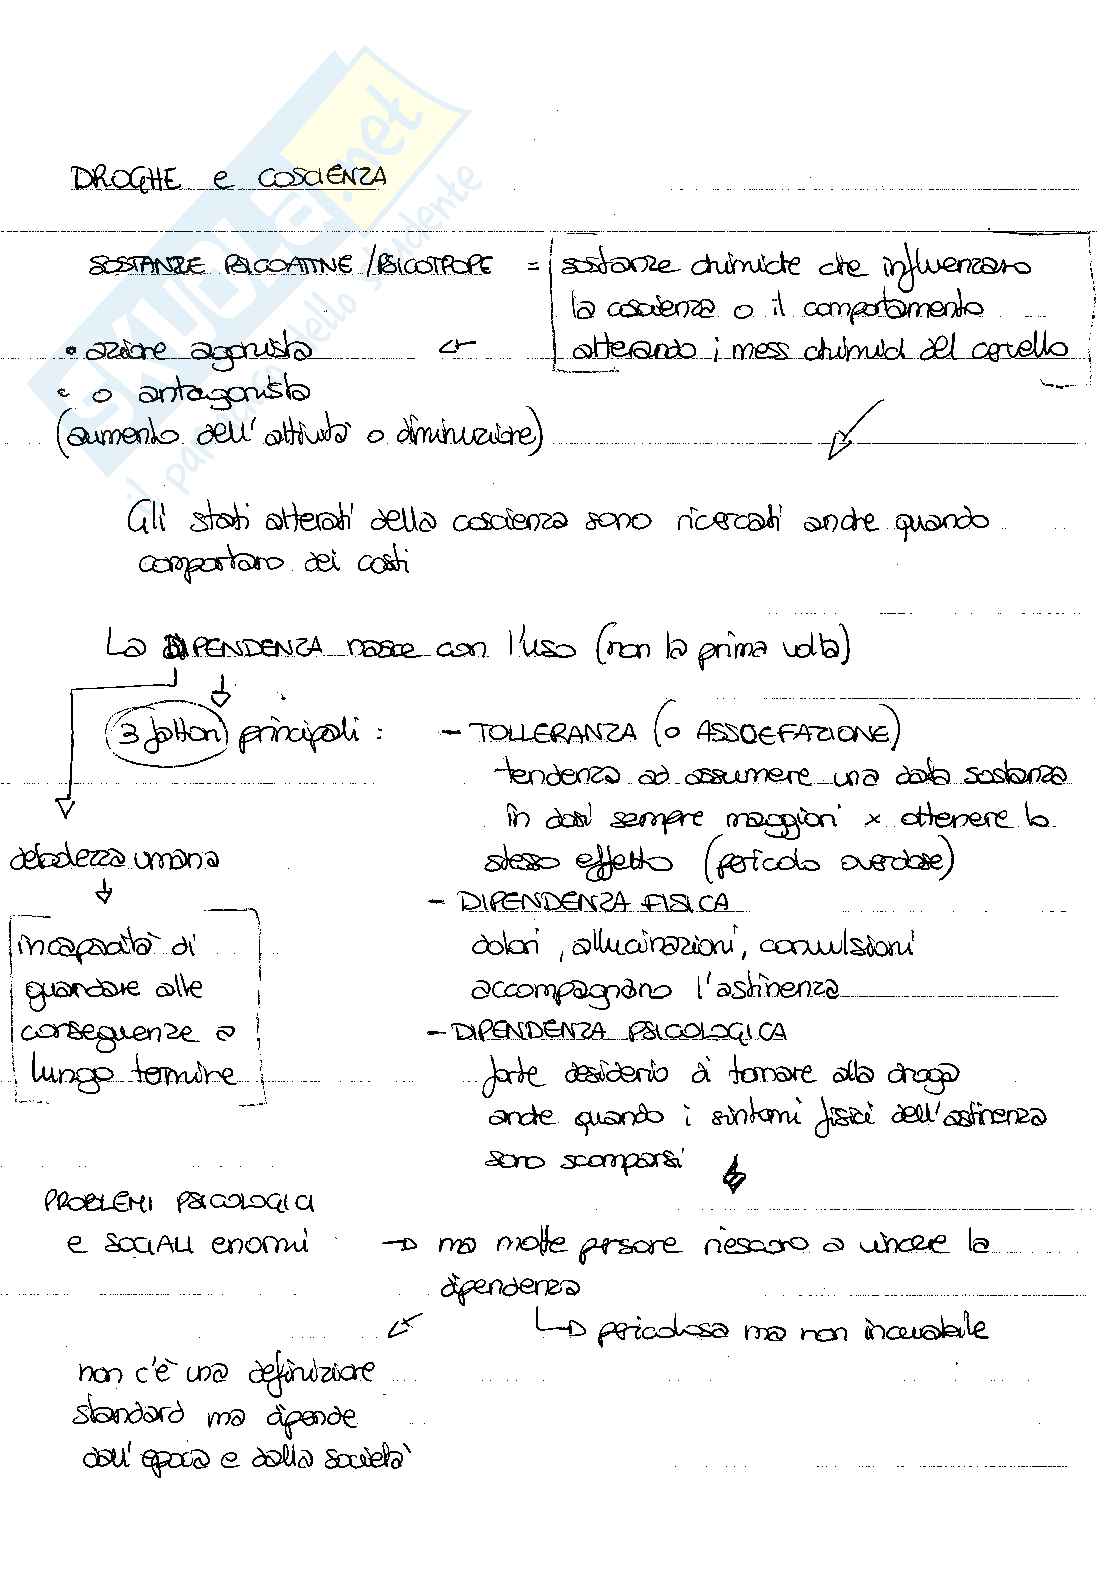 SKUOLA.net
il paradiso dello studente
DROGHE e COSCIENZA
SOSTANZE PSICOATTIVE / PSICOTROPE = sostanze chimiche che influenzano
la coscienza o il comportamento
alterando i mess chimici del cervello
• azione agonista ←
• o antagonista
(aumento dell'attività o diminuzione)
Gli stati alterati della coscienza sono ricercati anche quando
comportano dei costi
La DIPENDENZA nasce con l'uso (non la prima volta)
3 fattori principali :
- TOLLERANZA (o ASSUEFAZIONE)
tendenza ad assumere una data sostanza
in dosi sempre maggiori x ottenere lo
stesso effetto (pericolo overdose)
- DIPENDENZA FISICA
dolori, allucinazioni, convulsioni
accompagnano l'astinenza
- DIPENDENZA PSICOLOGICA
forte desiderio di tornare alla droga
anche quando i sintomi fisici dell'astinenza
sono scomparsi
debolezza umana
↓
incapacità di
guardare alle
conseguenze a
lungo termine
PROBLEMI PSICOLOGICI
e SOCIALI enormi → ma molte persone riescono a vincere la
dipendenza
↳ pericolosa ma non incurabile
non c'è una definizione
standard ma dipende
dall'epoca e dalla società